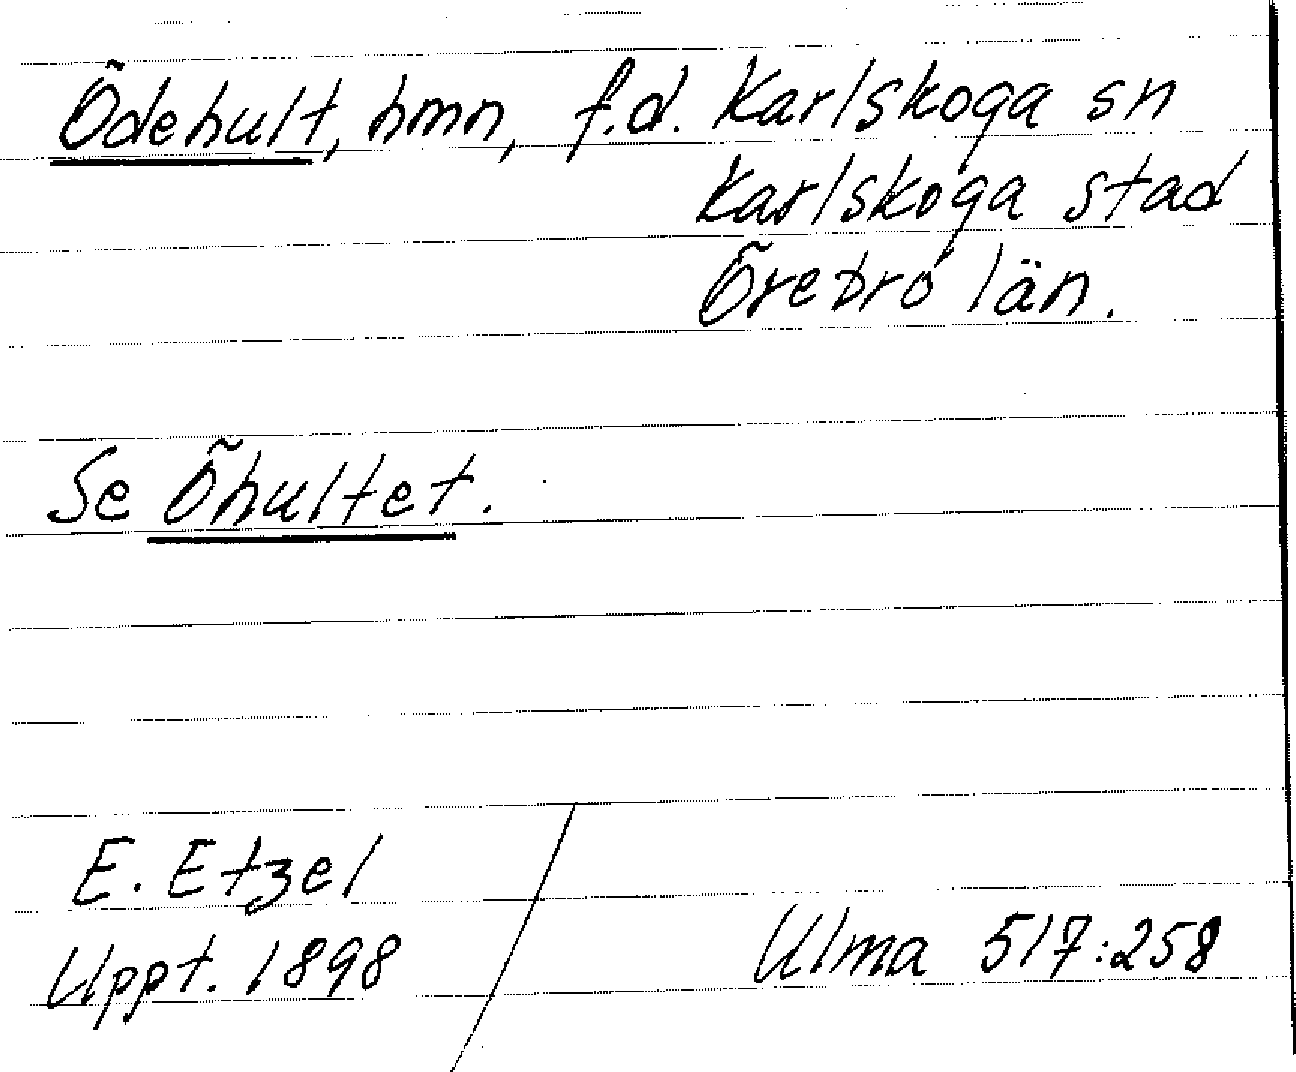 Ödehult, hmn, f.d. Karlskoga sn
Karlskoga stad
Örebro län.
Se Öhultet.
E. Etzel
Uppt. 1898
Ulma 517:258